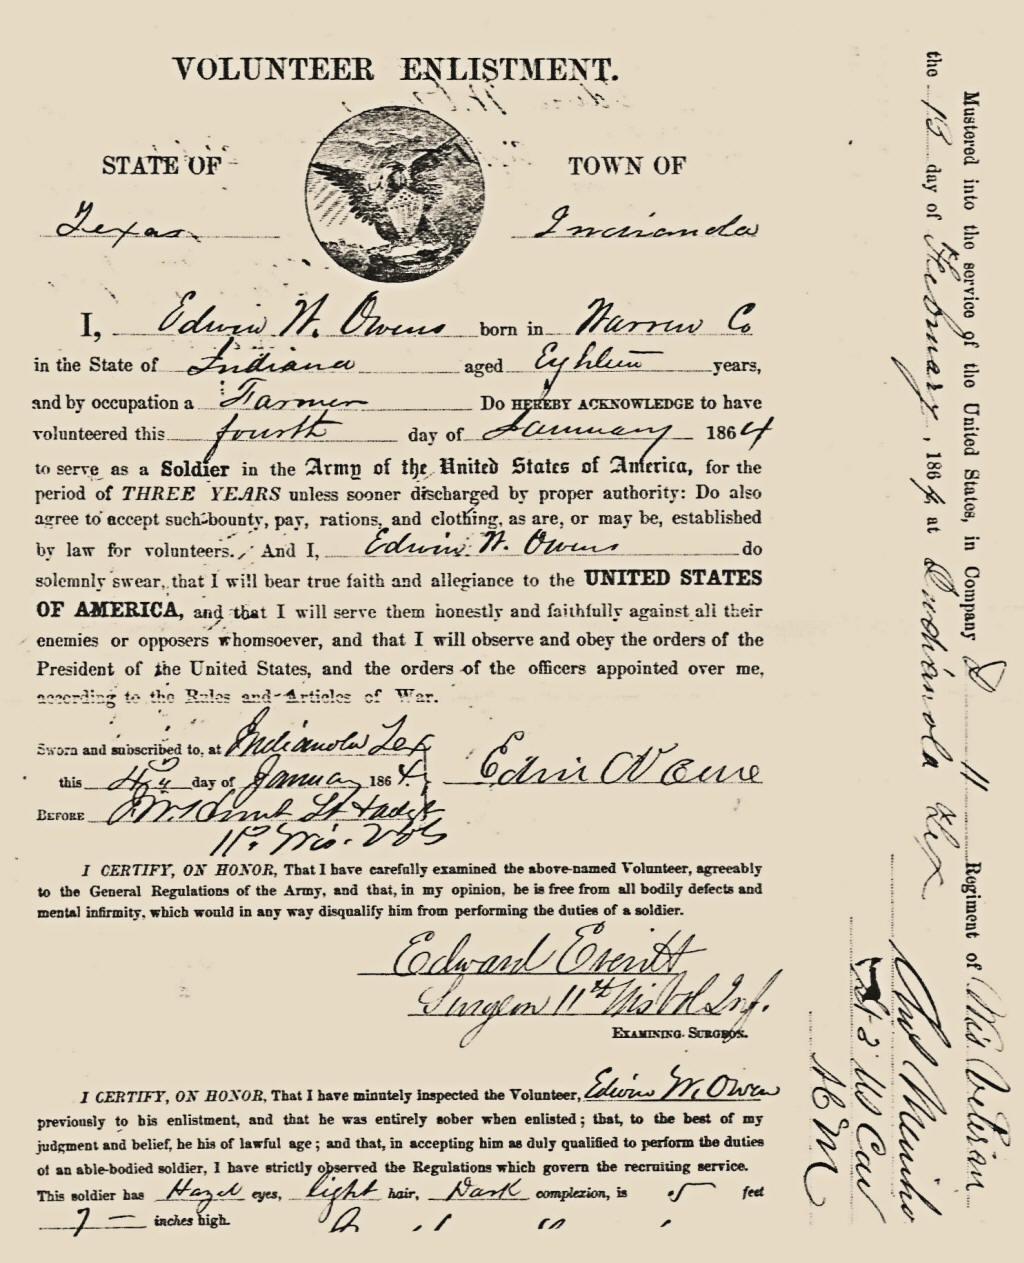 VOLUNTEER ENLISTMENT.
STATE OF
TOWN OF
Texas
I, Edwin W. Owens born in Warren Co
in the State of Indiana aged Eighteen years,
and by occupation a Farmer Do HEREBY ACKNOWLEDGE to have
volunteered this fourth day of January 1864
to serve as a Soldier in the Army of the United States of America, for the
period of THREE YEARS unless sooner discharged by proper authority: Do also
agree to accept such bounty, pay, rations, and clothing, as are, or may be, established
by law for volunteers. And I, Edwin W. Owens do
solemnly swear, that I will bear true faith and allegiance to the UNITED STATES
OF AMERICA, and that I will serve them honestly and faithfully against all their
enemies or opposers whomsoever, and that I will observe and obey the orders of the
President of the United States, and the orders of the officers appointed over me,
according to the Rules and Articles of War.
Sworn and subscribed to, at Indianola Tex
this 4th day of January 1864
BEFORE Lt
11th Wis. Vols
I CERTIFY, ON HONOR, That I have carefully examined the above-named Volunteer, agreeably
to the General Regulations of the Army, and that, in my opinion, he is free from all bodily defects and
mental infirmity, which would in any way disqualify him from performing the duties of a soldier.
Edward Everitt
Surgeon 11th Wis Vol Inf.
EXAMINING SURGEON.
I CERTIFY, ON HONOR, That I have minutely inspected the Volunteer, Edwin W. Owen
previously to his enlistment, and that he was entirely sober when enlisted; that, to the best of my
judgment and belief, he his of lawful age; and that, in accepting him as duly qualified to perform the duties
of an able-bodied soldier, I have strictly observed the Regulations which govern the recruiting service.
This soldier has Hazel eyes, light hair, Dark complexion, is 5 feet
7 inches high.
Mustered into the service of the United States, in Company D 11 Regiment of Wis Veteran
the 13 day of February, 1864, at Indianola Tex